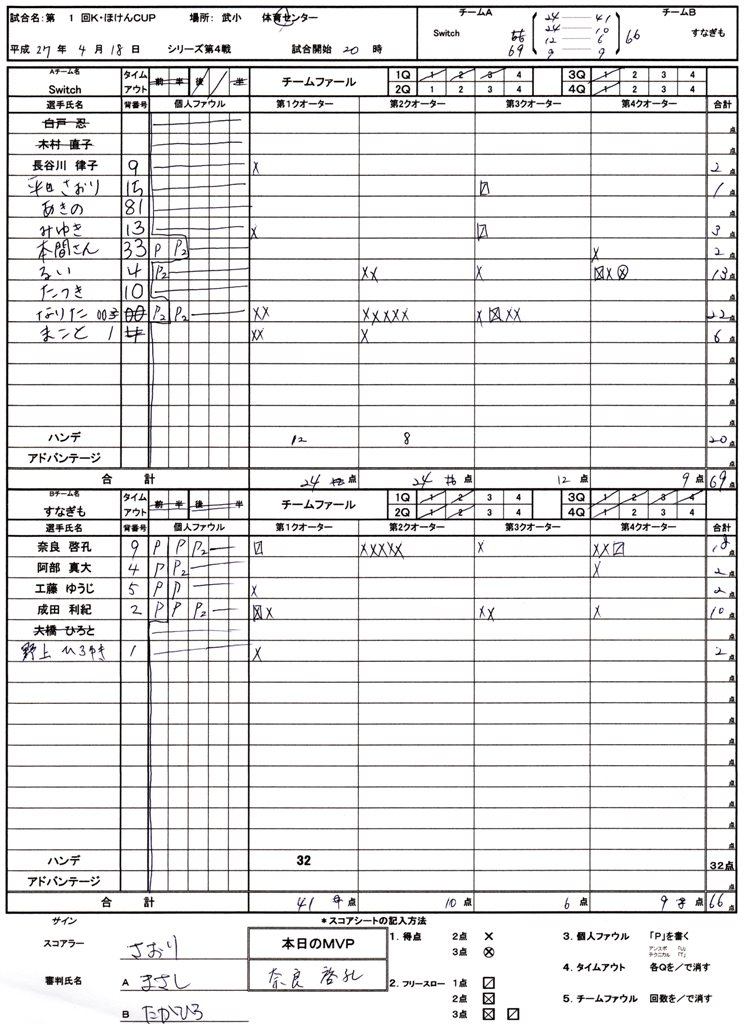 試合名:第 1 回K・ほけんCUP 場所: 武小 体育センター
平成 27 年 4 月 18 日 シリーズ第4戦 試合開始 20 時
チームA チームB
Switch 69 66 すなぎも
24 41
24 10
12 6
9 9
Aチーム名 タイム 前 半 後 半 チームファール 1Q 1 2 3 4 3Q 1 2 3 4
Switch アウト 2Q 1 2 3 4 4Q 1 2 3 4
選手氏名 背番号 個人ファウル 第1クオーター 第2クオーター 第3クオーター 第4クオーター 合計
白戸 忍 点
木村 直子 点
長谷川 律子 9 X 2 点
さおり 15 〼 1 点
あきの 81 点
みゆき 13 X 〼 3 点
本間さん 33 P P2 X 2 点
るい 4 P2 XX X ☒X⊗ 13 点
たつき 10 点
なりた 00 P2 P2 XX XXXXX X☒XX 22 点
まこと 1 XX X 6 点
点
点
点
点
ハンデ 12 8 20 点
アドバンテージ 点
合 計 24 点 24 点 12 点 9 点 69 点
Bチーム名 タイム 前 半 後 半 チームファール 1Q 1 2 3 4 3Q 1 2 3 4
すなぎも アウト 2Q 1 2 3 4 4Q 1 2 3 4
選手氏名 背番号 個人ファウル 第1クオーター 第2クオーター 第3クオーター 第4クオーター 合計
奈良 啓孔 9 P P P2 〼 XXXXX X XX〼 18 点
阿部 真大 4 P P2 X 2 点
工藤 ゆうじ 5 P P X 2 点
成田 利紀 2 P P P2 ☒X XX X 10 点
大橋 ひろと 点
野上 ひろゆき 1 X 2 点
点
点
点
点
点
点
点
点
点
ハンデ 32 32点
アドバンテージ 点
合 計 41 点 10 点 6 点 9 点 66 点
サイン *スコアシートの記入方法
スコアラー さおり 本日のMVP
奈良 啓孔
審判氏名 A まさし
B たかひろ
1. 得点 2点 X
3点 ⊗
2. フリースロー 1点 〼
2点 ☒
3点 ☒ 〼
3. 個人ファウル 「P」を書く
アンスポ 「U」
テクニカル 「T」
4. タイムアウト 各Qを/で消す
5. チームファウル 回数を/で消す